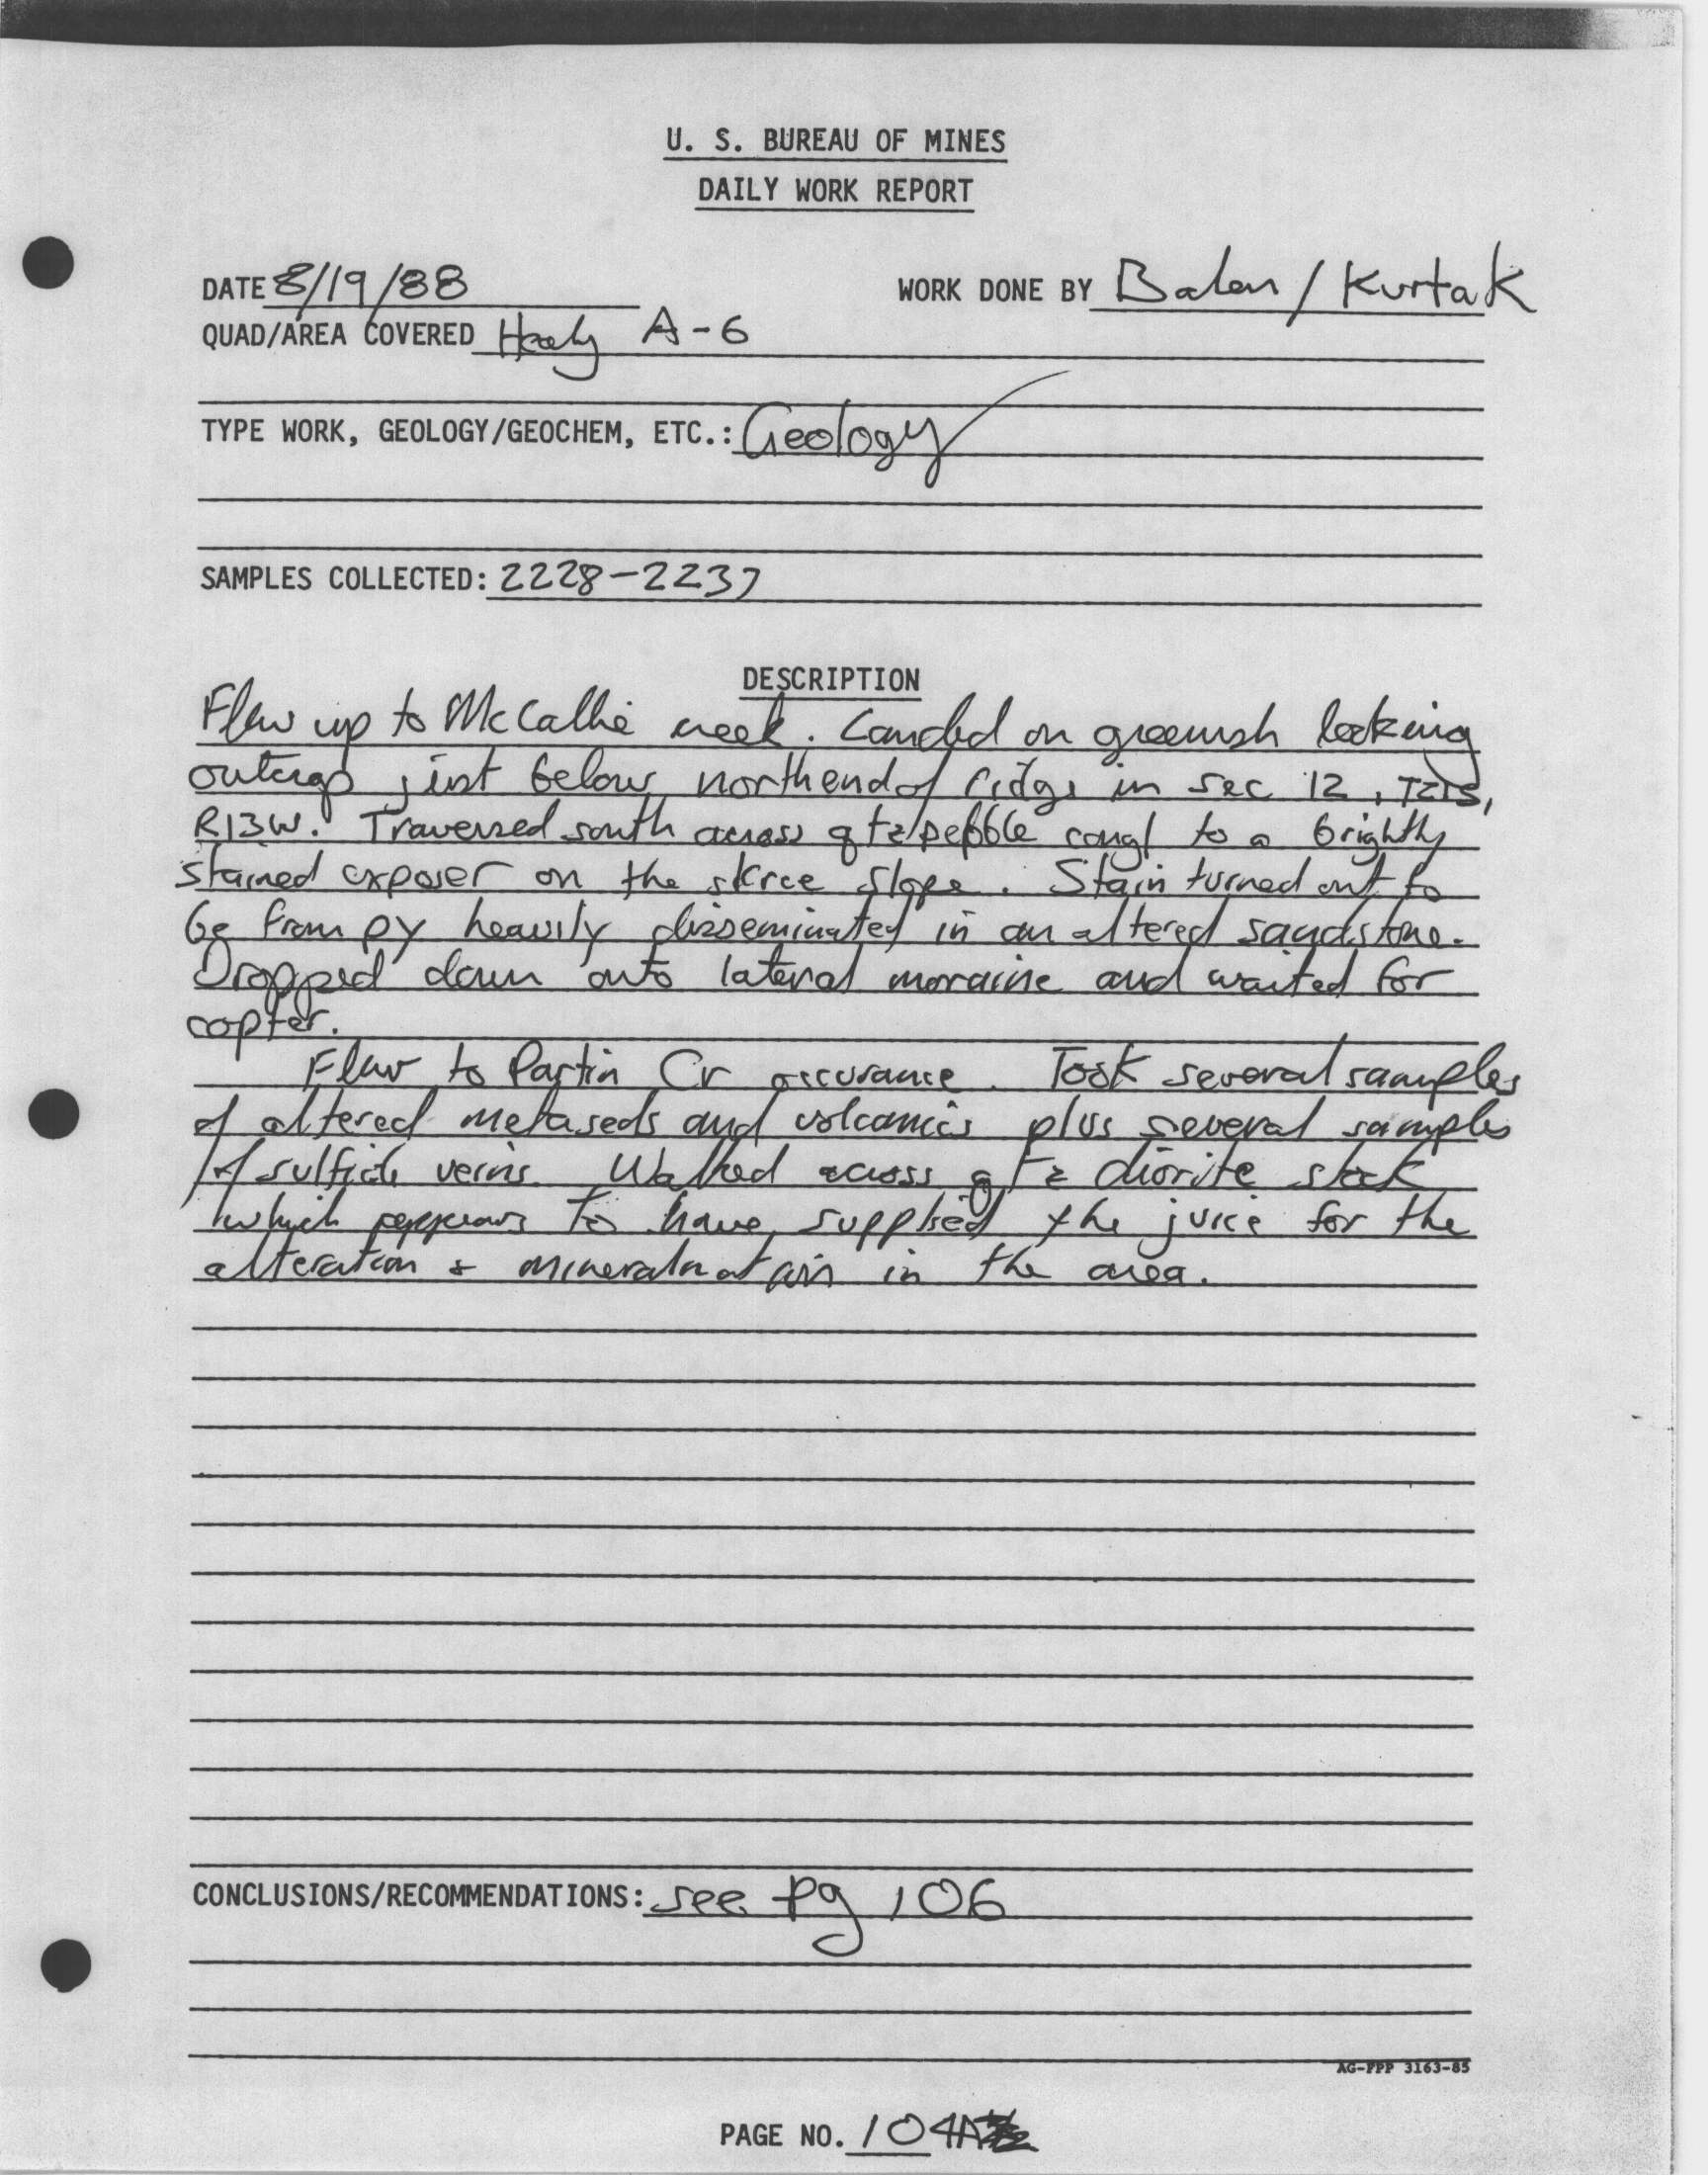 U. S. BUREAU OF MINES
DAILY WORK REPORT
DATE 8/19/88 WORK DONE BY Balen / Kurtak
QUAD/AREA COVERED Healy A-6
TYPE WORK, GEOLOGY/GEOCHEM, ETC.: Geology
SAMPLES COLLECTED: 2228-2237
DESCRIPTION
Flew up to McCallie creek. Landed on greenish looking
outcrop just below north end of ridge in sec 12, T21S,
R13W. Traversed south across qtz pebble congl to a brightly
stained exposer on the skree slope. Stain turned out to
be from py heavily disseminated in an altered sandstone.
Dropped down onto lateral moraine and waited for
copter.
Flew to Partin Cr occurance. Took several samples
of altered metaseds and volcanics plus several samples
of sulfide veins. Walked across qtz diorite stock
which appears to have supplied the juice for the
alteration & mineralization in the area.
CONCLUSIONS/RECOMMENDATIONS: see pg 106
AG-FPP 3163-85
PAGE NO. 104A